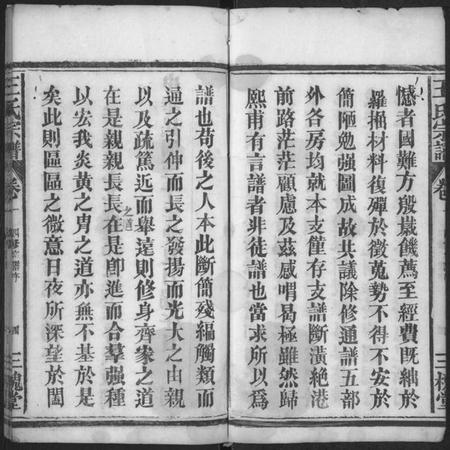 憾者國難方殷歲饑薦至經費既絀於
羅掘材料復殫於徵蒐勢不得不安於
簡陋勉强圖成故共議除修通譜五部
外各房均就本支僅存支譜斷潢絶港
前路茫茫顧慮及茲感喟曷極雖然歸
熙甫有言譜者非徒譜也當求所以爲
譜也苟後之人本此斷簡殘編觸類而
通之引伸而長之發揚而光大之由親
以及疏篤近而舉遠則修身齊家之道
在是親親長長在是卽進而合羣强種
之道
以宏我炎黃之胄之道亦無不基於是
矣此則區區之微意日夜所深望於閤
王氏宗譜
卷
三槐堂
王氏宗譜
卷一
四
三槐堂